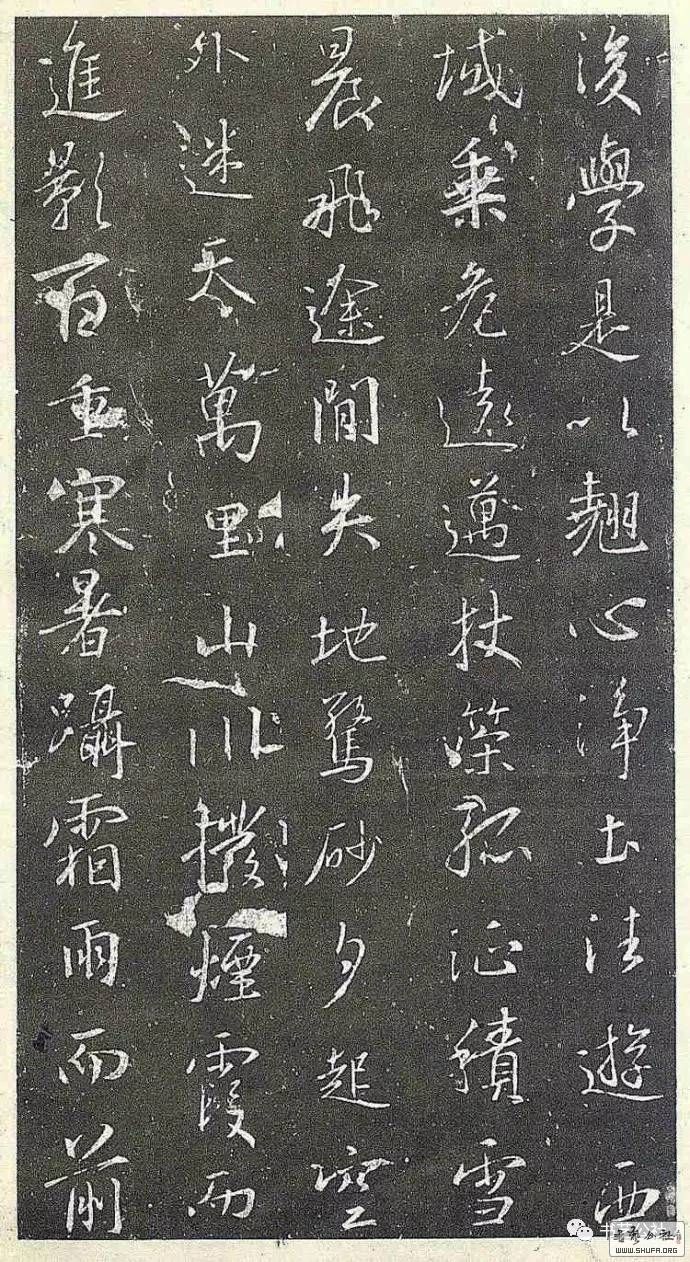 後學是以翹心淨土往遊西
域乘危遠邁杖策孤征積雪
晨飛途間失地驚砂夕起空
外迷天萬里山川撥煙霞而
進影百重寒暑躡霜雨而前
WWW.SHUFA.ORG